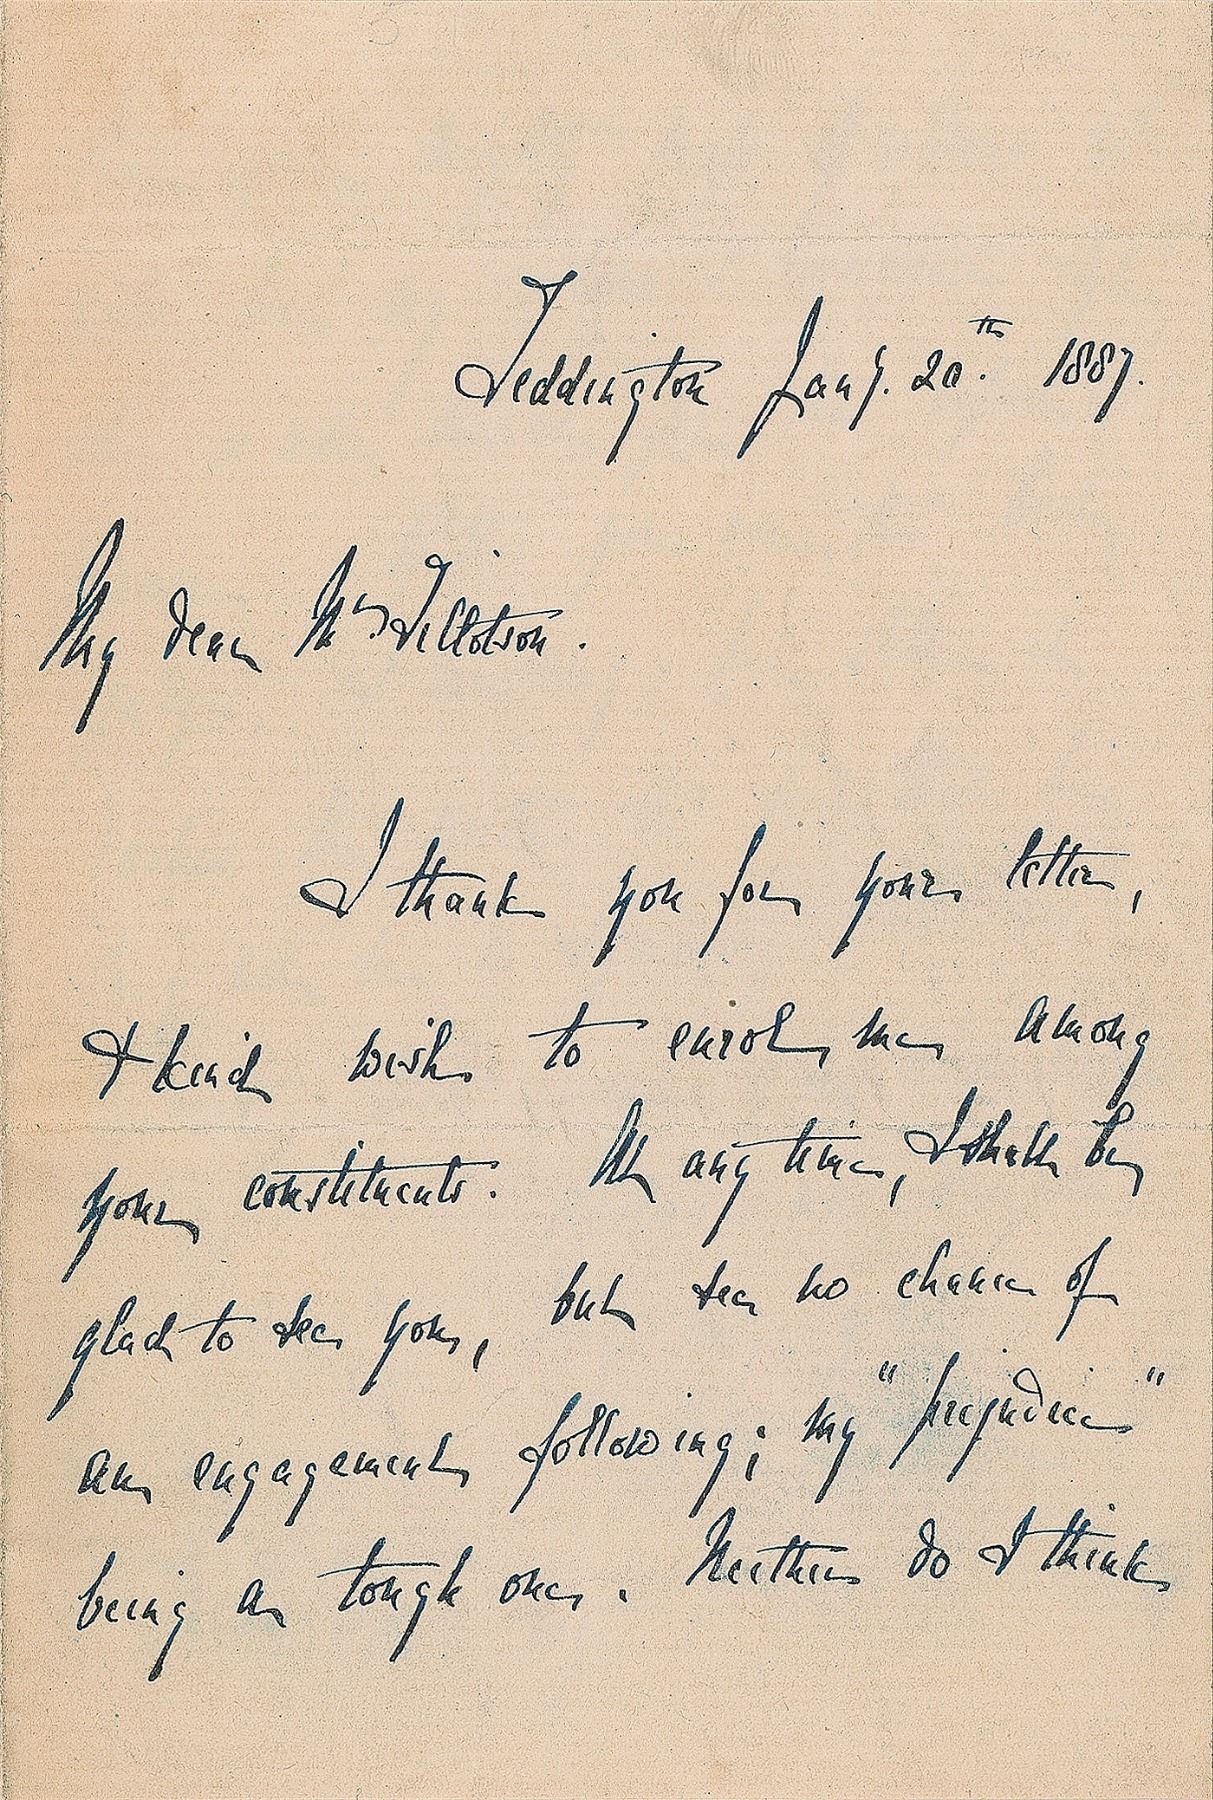 Teddington Jany. 20th. 1887.
My dear Mr. Tillotson.
I thank you for your letter,
& kind wish to enrol me among
your constituents. At any time, I shall be
glad to see you, but see no chance of
an engagement following; my "prejudice"
being a tough one. Neither do I think